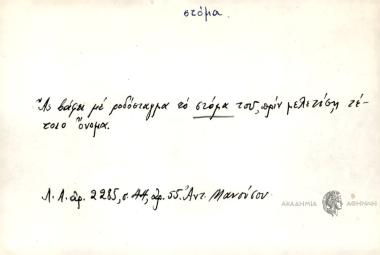 στόμα.
Ἂς βάψῃ μὲ ροδόσταγμα τὸ στόμα του, πρὶν μελετήσῃ τέ-
τοιο ὄνομα.
Λ. Α. ἀρ. 2285, σ. 44, ἀρ. 55. Ἀντ. Μανούσου.
ΑΚΑΔΗΜΙΑ ΑΘΗΝΩΝ